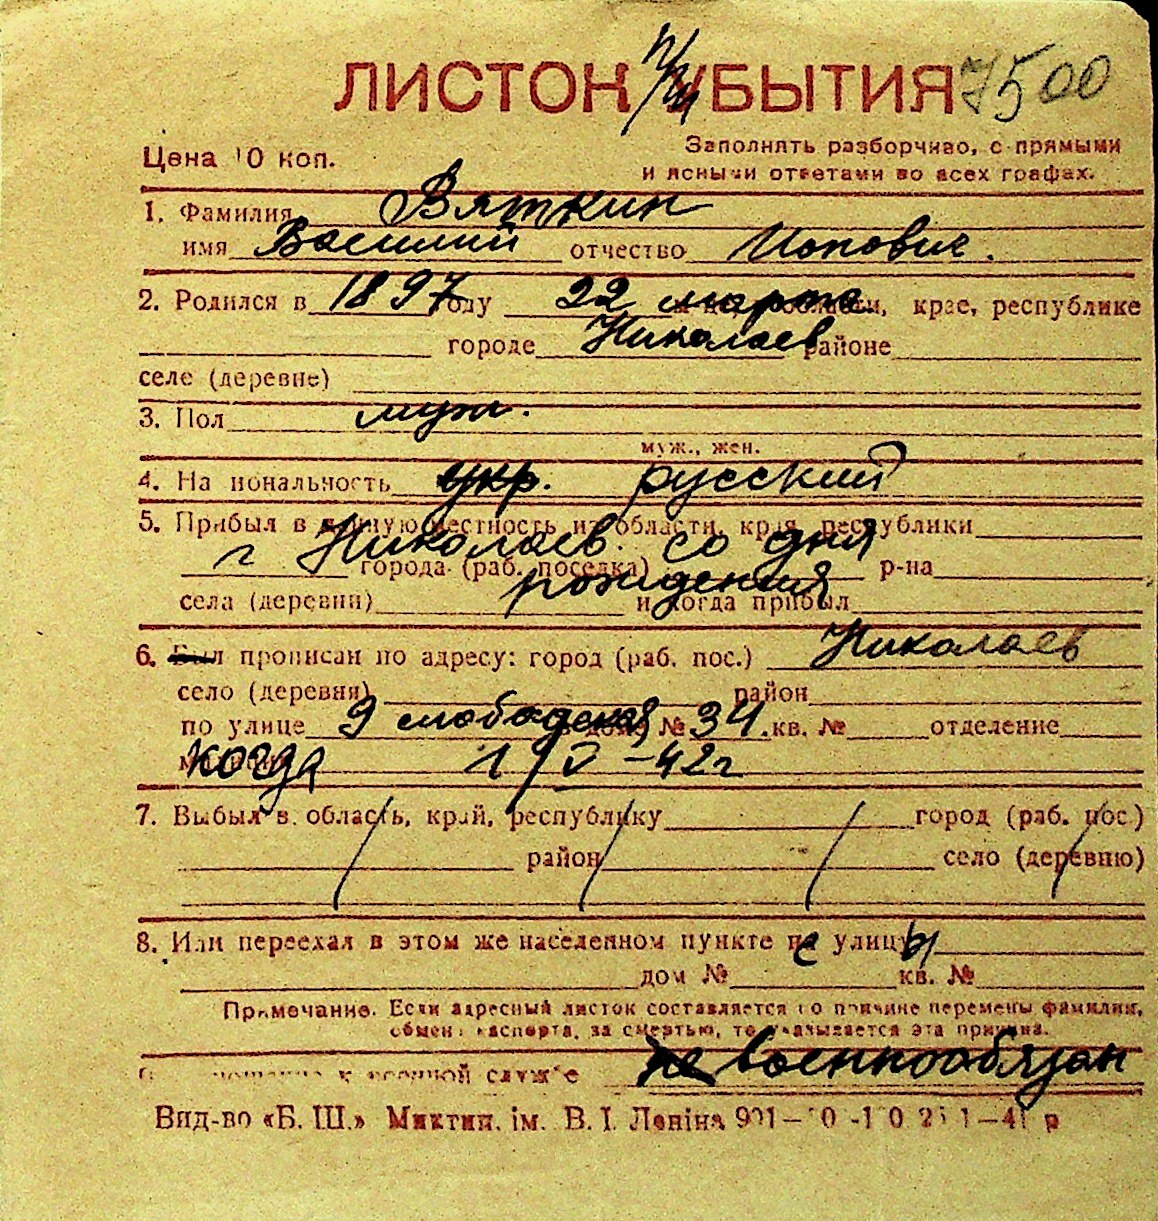 ЛИСТОК УБЫТИЯ 7500
Цена 10 коп.
Заполнять разборчиво, с прямыми
и ясными ответами во всех графах.
1. Фамилия Вяткин
имя Василий отчество
2. Родился в 1897 году 22 марта области, крае, республике
городе Николаев районе
селе (деревне)
3. Пол муж.
муж., жен.
4. Национальность укр. русский
5. Прибыл в данную местность из области, края, республики
г Николаев. со дня
города (раб. поселка) рождения р-на
села (деревни) и когда прибыл
6. Был прописан по адресу: город (раб. пос.) Николаев
село (деревня) район
по улице 9 слободская дом № 34. кв. № отделение
когда 1/V-42г
7. Выбыл в область, край, республику город (раб. пос.)
район село (деревню)
8. Или переехал в этом же населенном пункте с улицы
дом № кв. №
Примечание. Если адресный листок составляется по причине перемены фамилии,
обмена паспорта, за смертью, то указывается эта причина.
к военной службе не военнообязан
Вид-во «Б. Ш.» Миктип. ім. В. І. Леніна